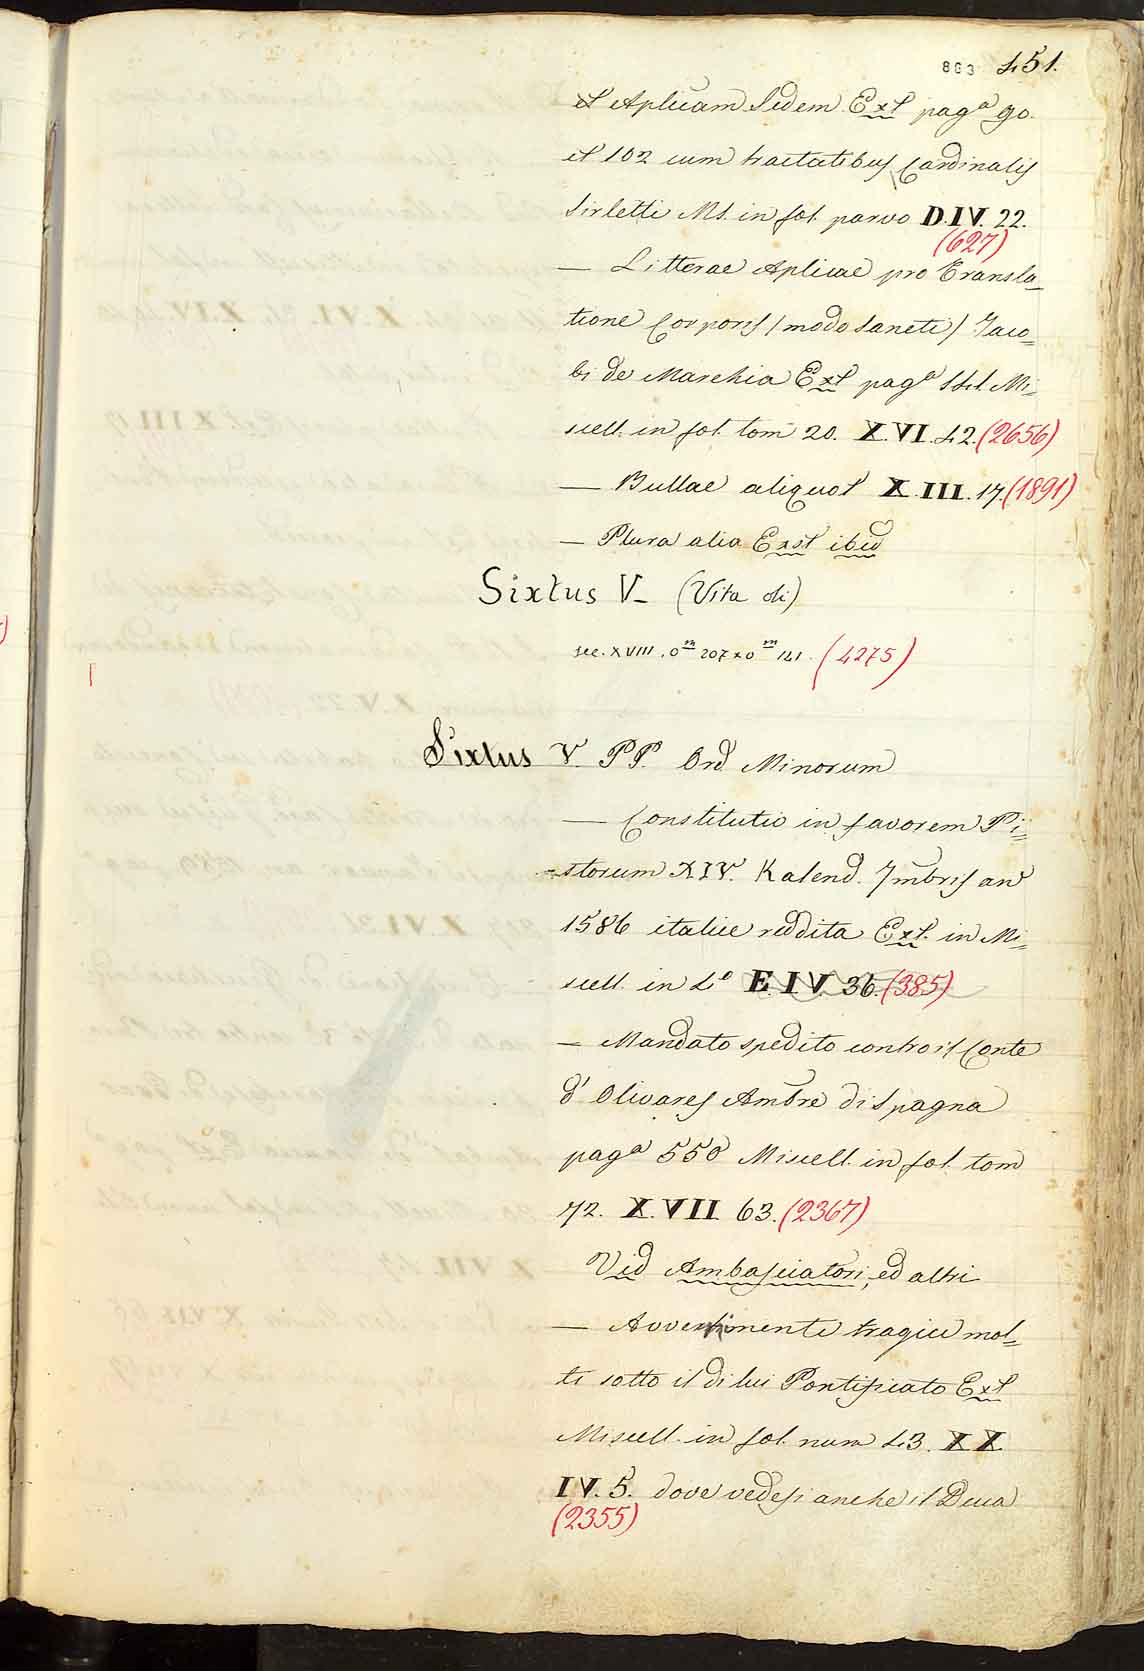 863 451.
et Aplicam Sedem Ext pagª 90.
et 102 cum tractatibus Cardinalis
Sirleti Ms. in fol. parvo D.IV. 22.
(627)
— Litterae Aplicae pro Transla=
tione Corporis (modo Sancti) Jaco=
bi de Marchia Ext pagª 141. Mi=
scell. in fol. tom 20. X.VI.42.(2656)
— Bullae aliquot X.III.17.(1891)
— Plura alia Exst ibid
Sixtus V_ (Vita di)
sec. XVIII. 0m 207 x 0m 141. (4275)
Sixtus V. PP. Ord Minorum
— Constitutio in favorem Pi=
-storum XIV. Kalend. Jmbris an
1586 italice reddita Ext. in Mi=
scell. in 4º E.IV. 36.(385)
— Mandato spedito contro il Conte
d' Olivares Ambre di Spagna
pagª 550 Miscell. in fol. tom
72. X.VII. 63.(2367)
Vid Ambasciatori, ed altri
— Avvenimenti tragici mol=
ti sotto il di lui Pontificato Ext
Miscell. in fol. num 43. XX
IV. 5. dove vedesi anche il Duca
(2355)